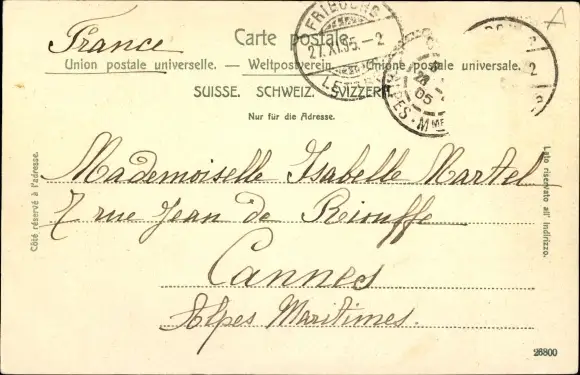 France
Carte postale.
Union postale universelle. — Weltpostverein. — Unione postale universale.
SUISSE. SCHWEIZ. SVIZZERA.
Nur für die Adresse.
FRIBOURG
27.XI.05.-2
05
ALPES-MMES
Côté réservé à l'adresse.
Mademoiselle Isabelle Martel
7 rue Jean de Riouffe
Cannes
Alpes Maritimes.
Lato riservato all' indirizzo.
26800
A